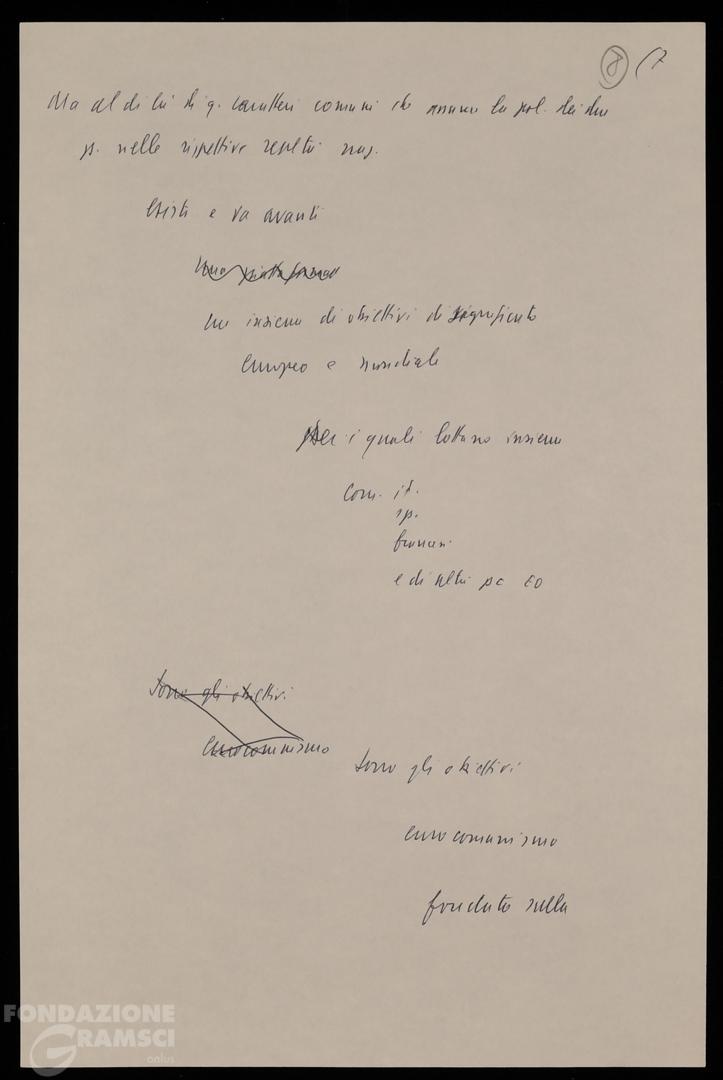 8 (7
Ma al di là di q. caratteri comuni che hanno la pol. dei due
p. nelle rispettive realtà naz.
Esiste e va avanti
Una piattaforma
un insieme di obiettivi di significato
europeo e mondiale
per i quali lottano insieme
com. it.
sp.
francesi
e di altri pc EO
Sono gli obiettivi
Eurocomunismo
Sono gli obiettivi
eurocomunismo
fondato sulla
FONDAZIONE
GRAMSCI
onlus